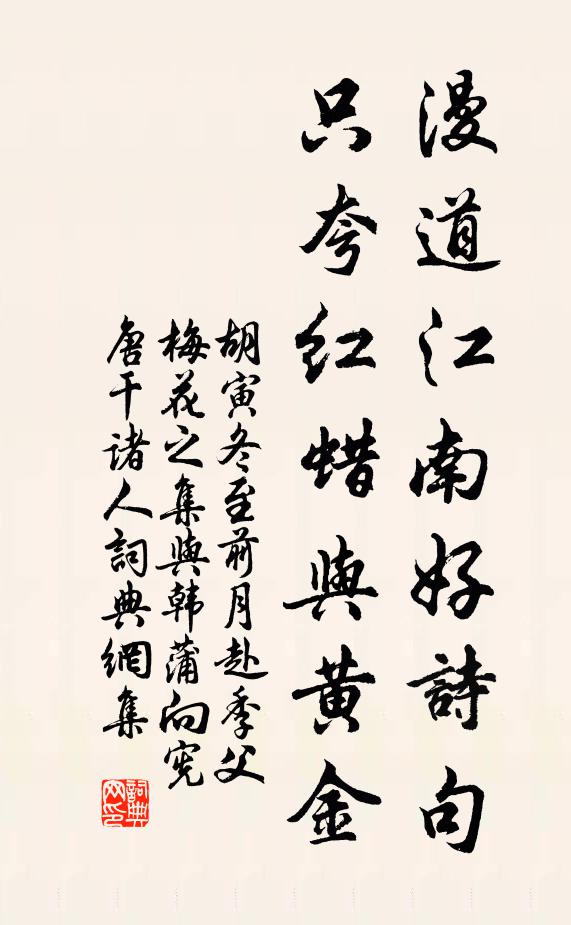 漫道江南好詩句
只夸红蜡與黄金
胡寅冬至前月赴季父
梅花之集與韩蒲向宪
唐干诸人詞典網集
詞典网印